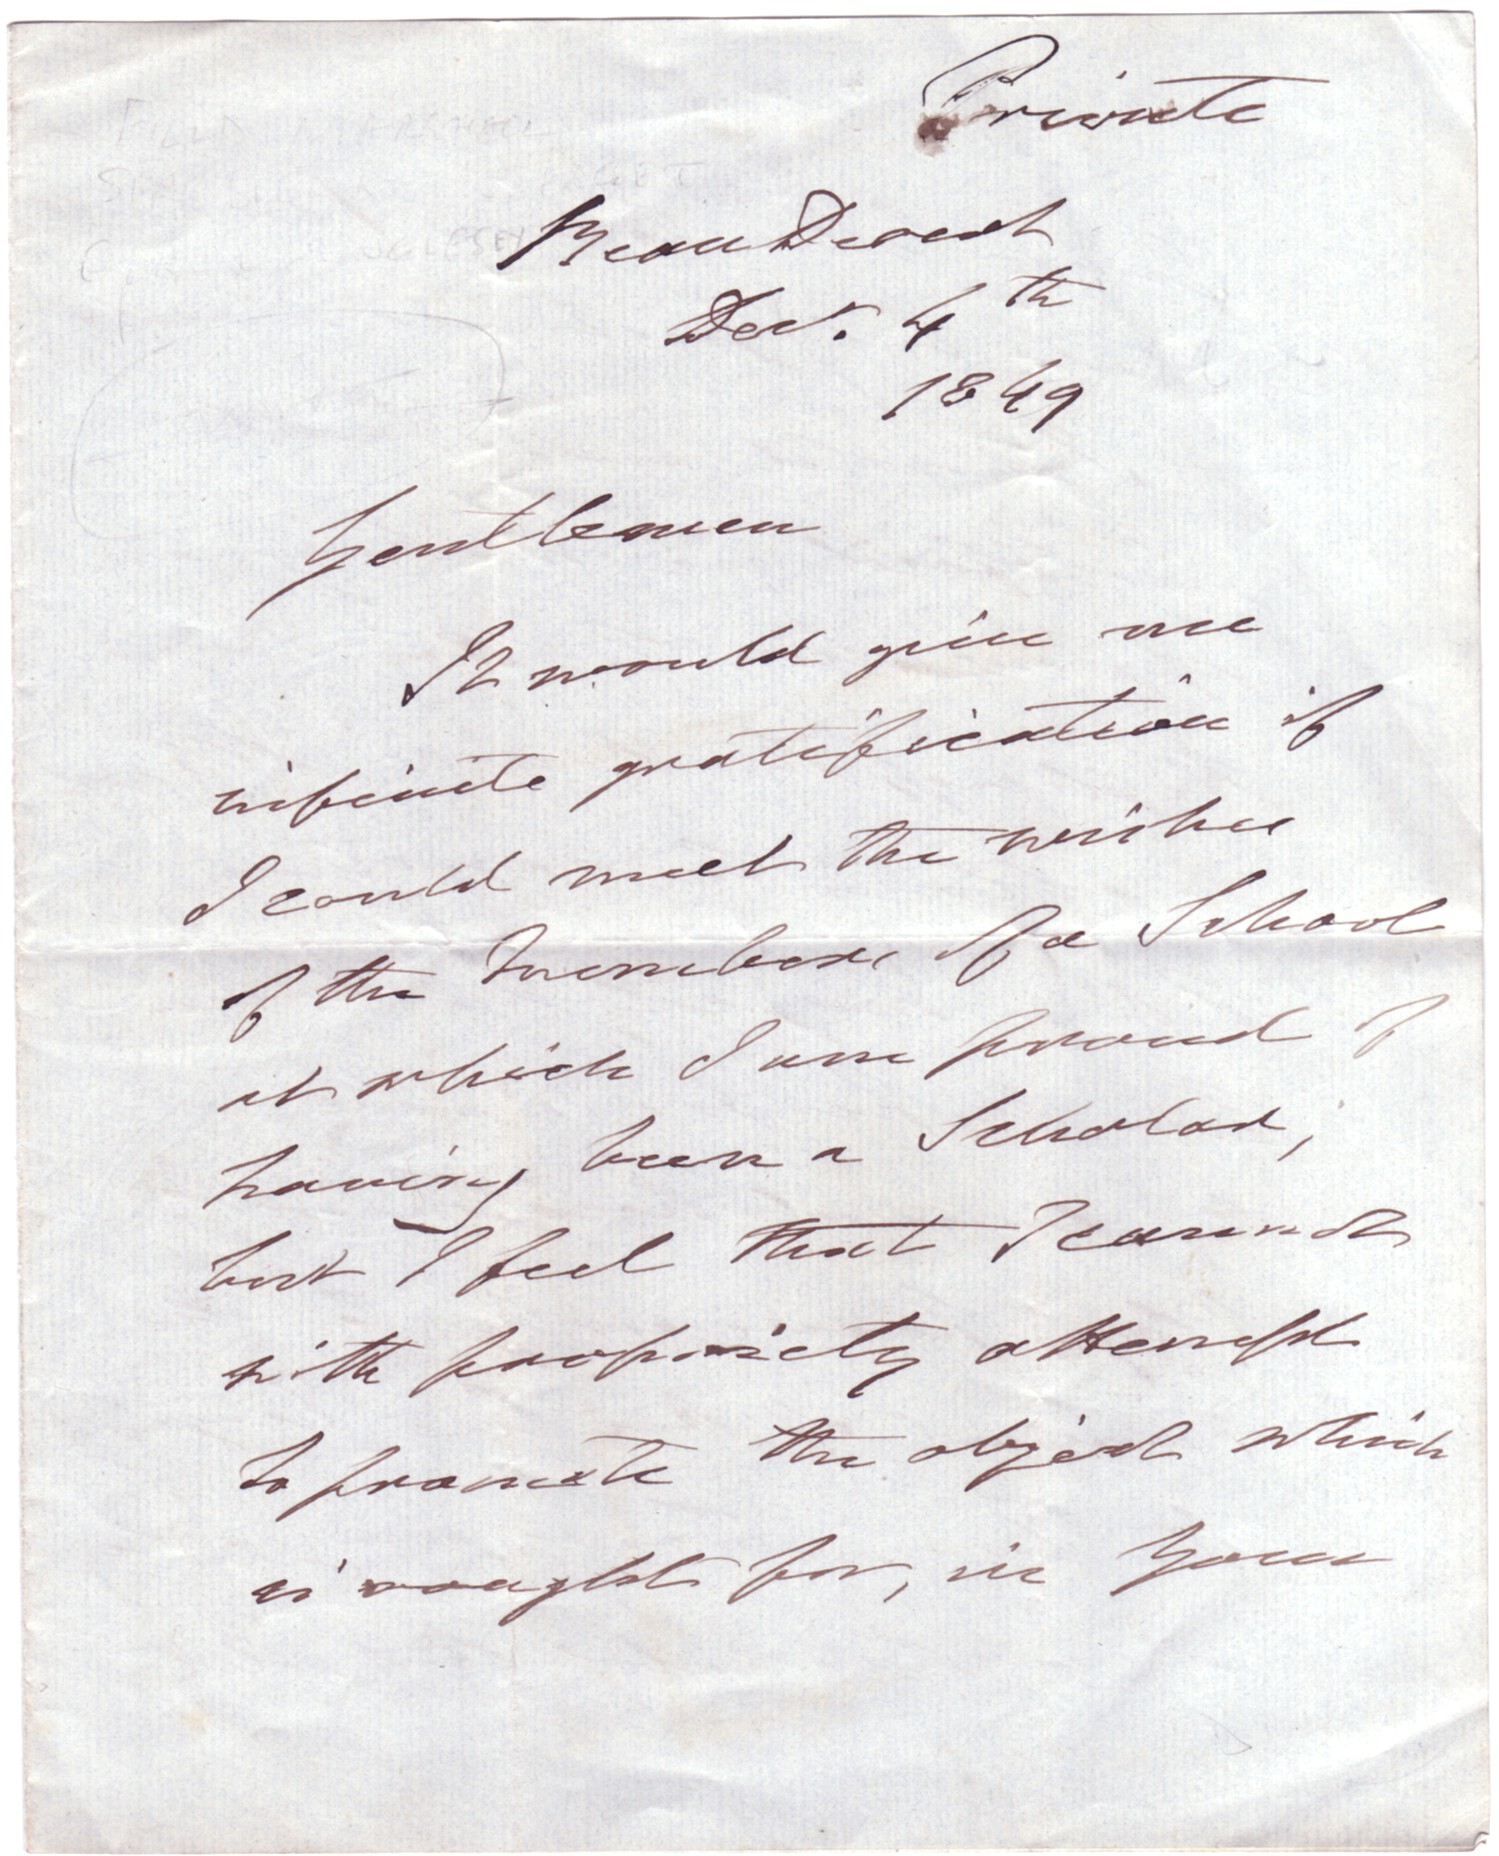 Private
Beau Desert
Decr. 4th
1849
Gentlemen
It would give me
infinite gratification if
I could meet the wishes
of the Members of a School
at which I am proud of
having been a Scholar,
but I feel that I cannot
with propriety attempt
to promote the object which
is sought for, in your